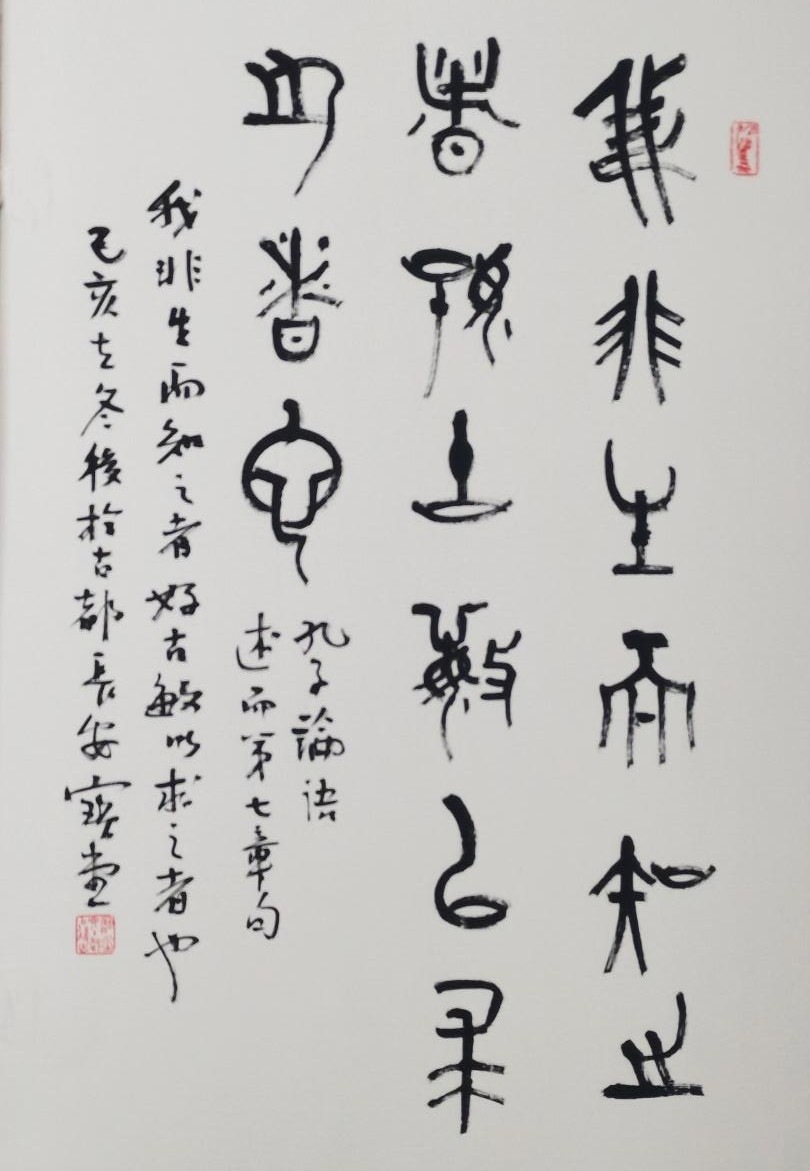 我非生而知之
者好古敏以求
之者也
孔子論語
述而第七章句
我非生而知之者好古敏以求之者也
己亥立冬後於古都長安寶堂